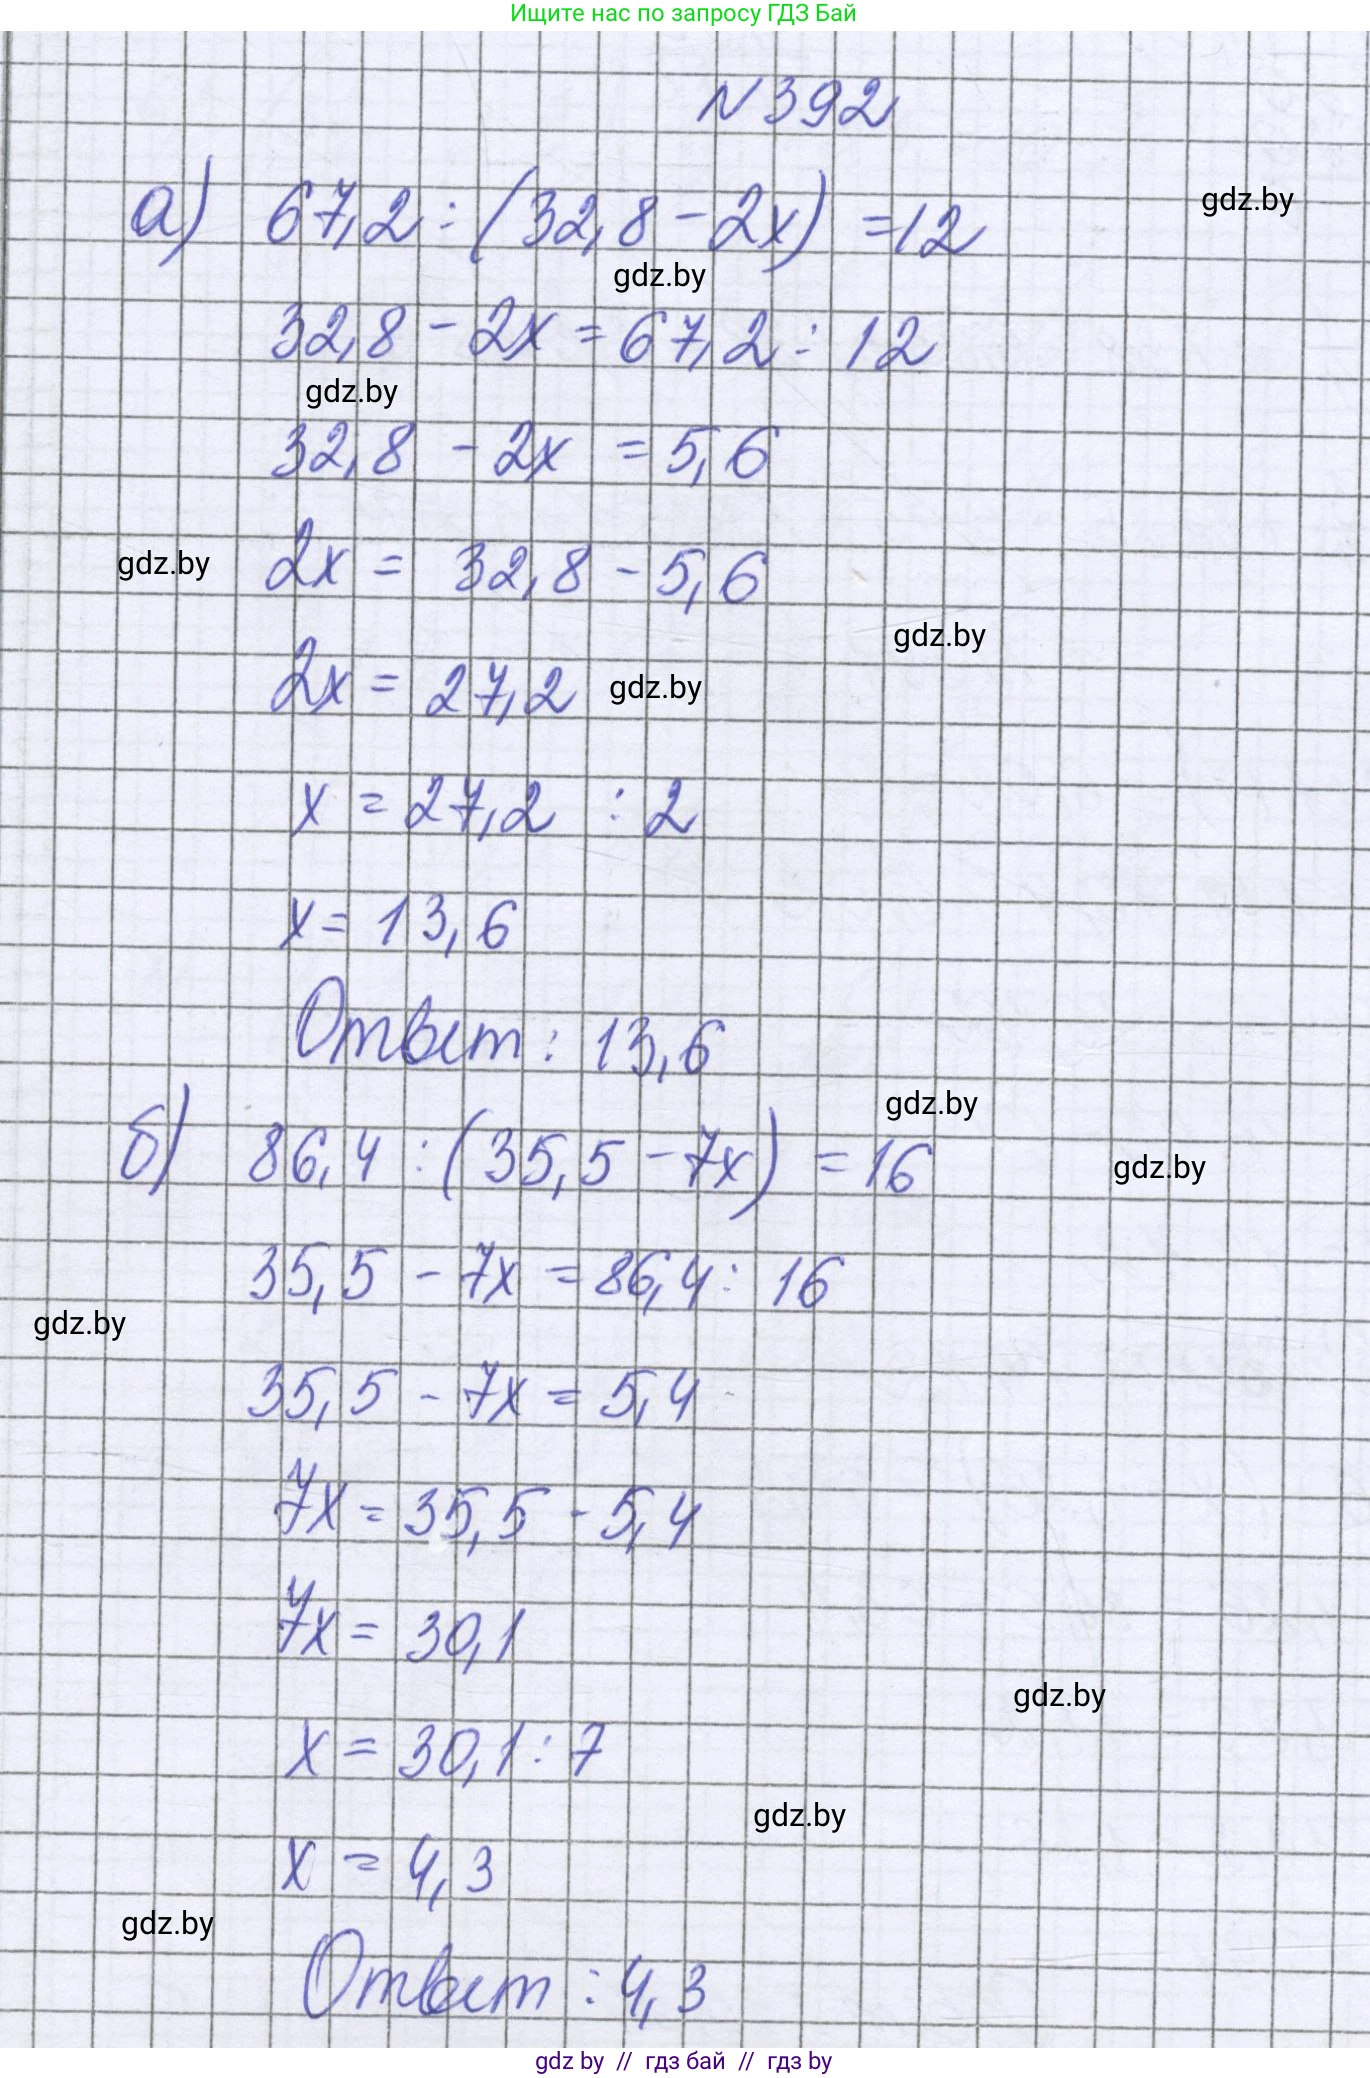 Ищите нас по запросу ГДЗ Бай
N 392
а) 67,2 : (32,8 - 2x) = 12
gdz.by
gdz.by
32,8 - 2x = 67,2 : 12
gdz.by
32,8 - 2x = 5,6
gdz.by
2x = 32,8 - 5,6
gdz.by
2x = 27,2
gdz.by
x = 27,2 : 2
x = 13,6
Ответ : 13,6
gdz.by
б) 86,4 : (35,5 - 7x) = 16
gdz.by
35,5 - 7x = 86,4 : 16
gdz.by
35,5 - 7x = 5,4
7x = 35,5 - 5,4
7x = 30,1
gdz.by
x = 30,1 : 7
gdz.by
x = 4,3
gdz.by
Ответ : 4,3
gdz by // гдз бай // гдз by